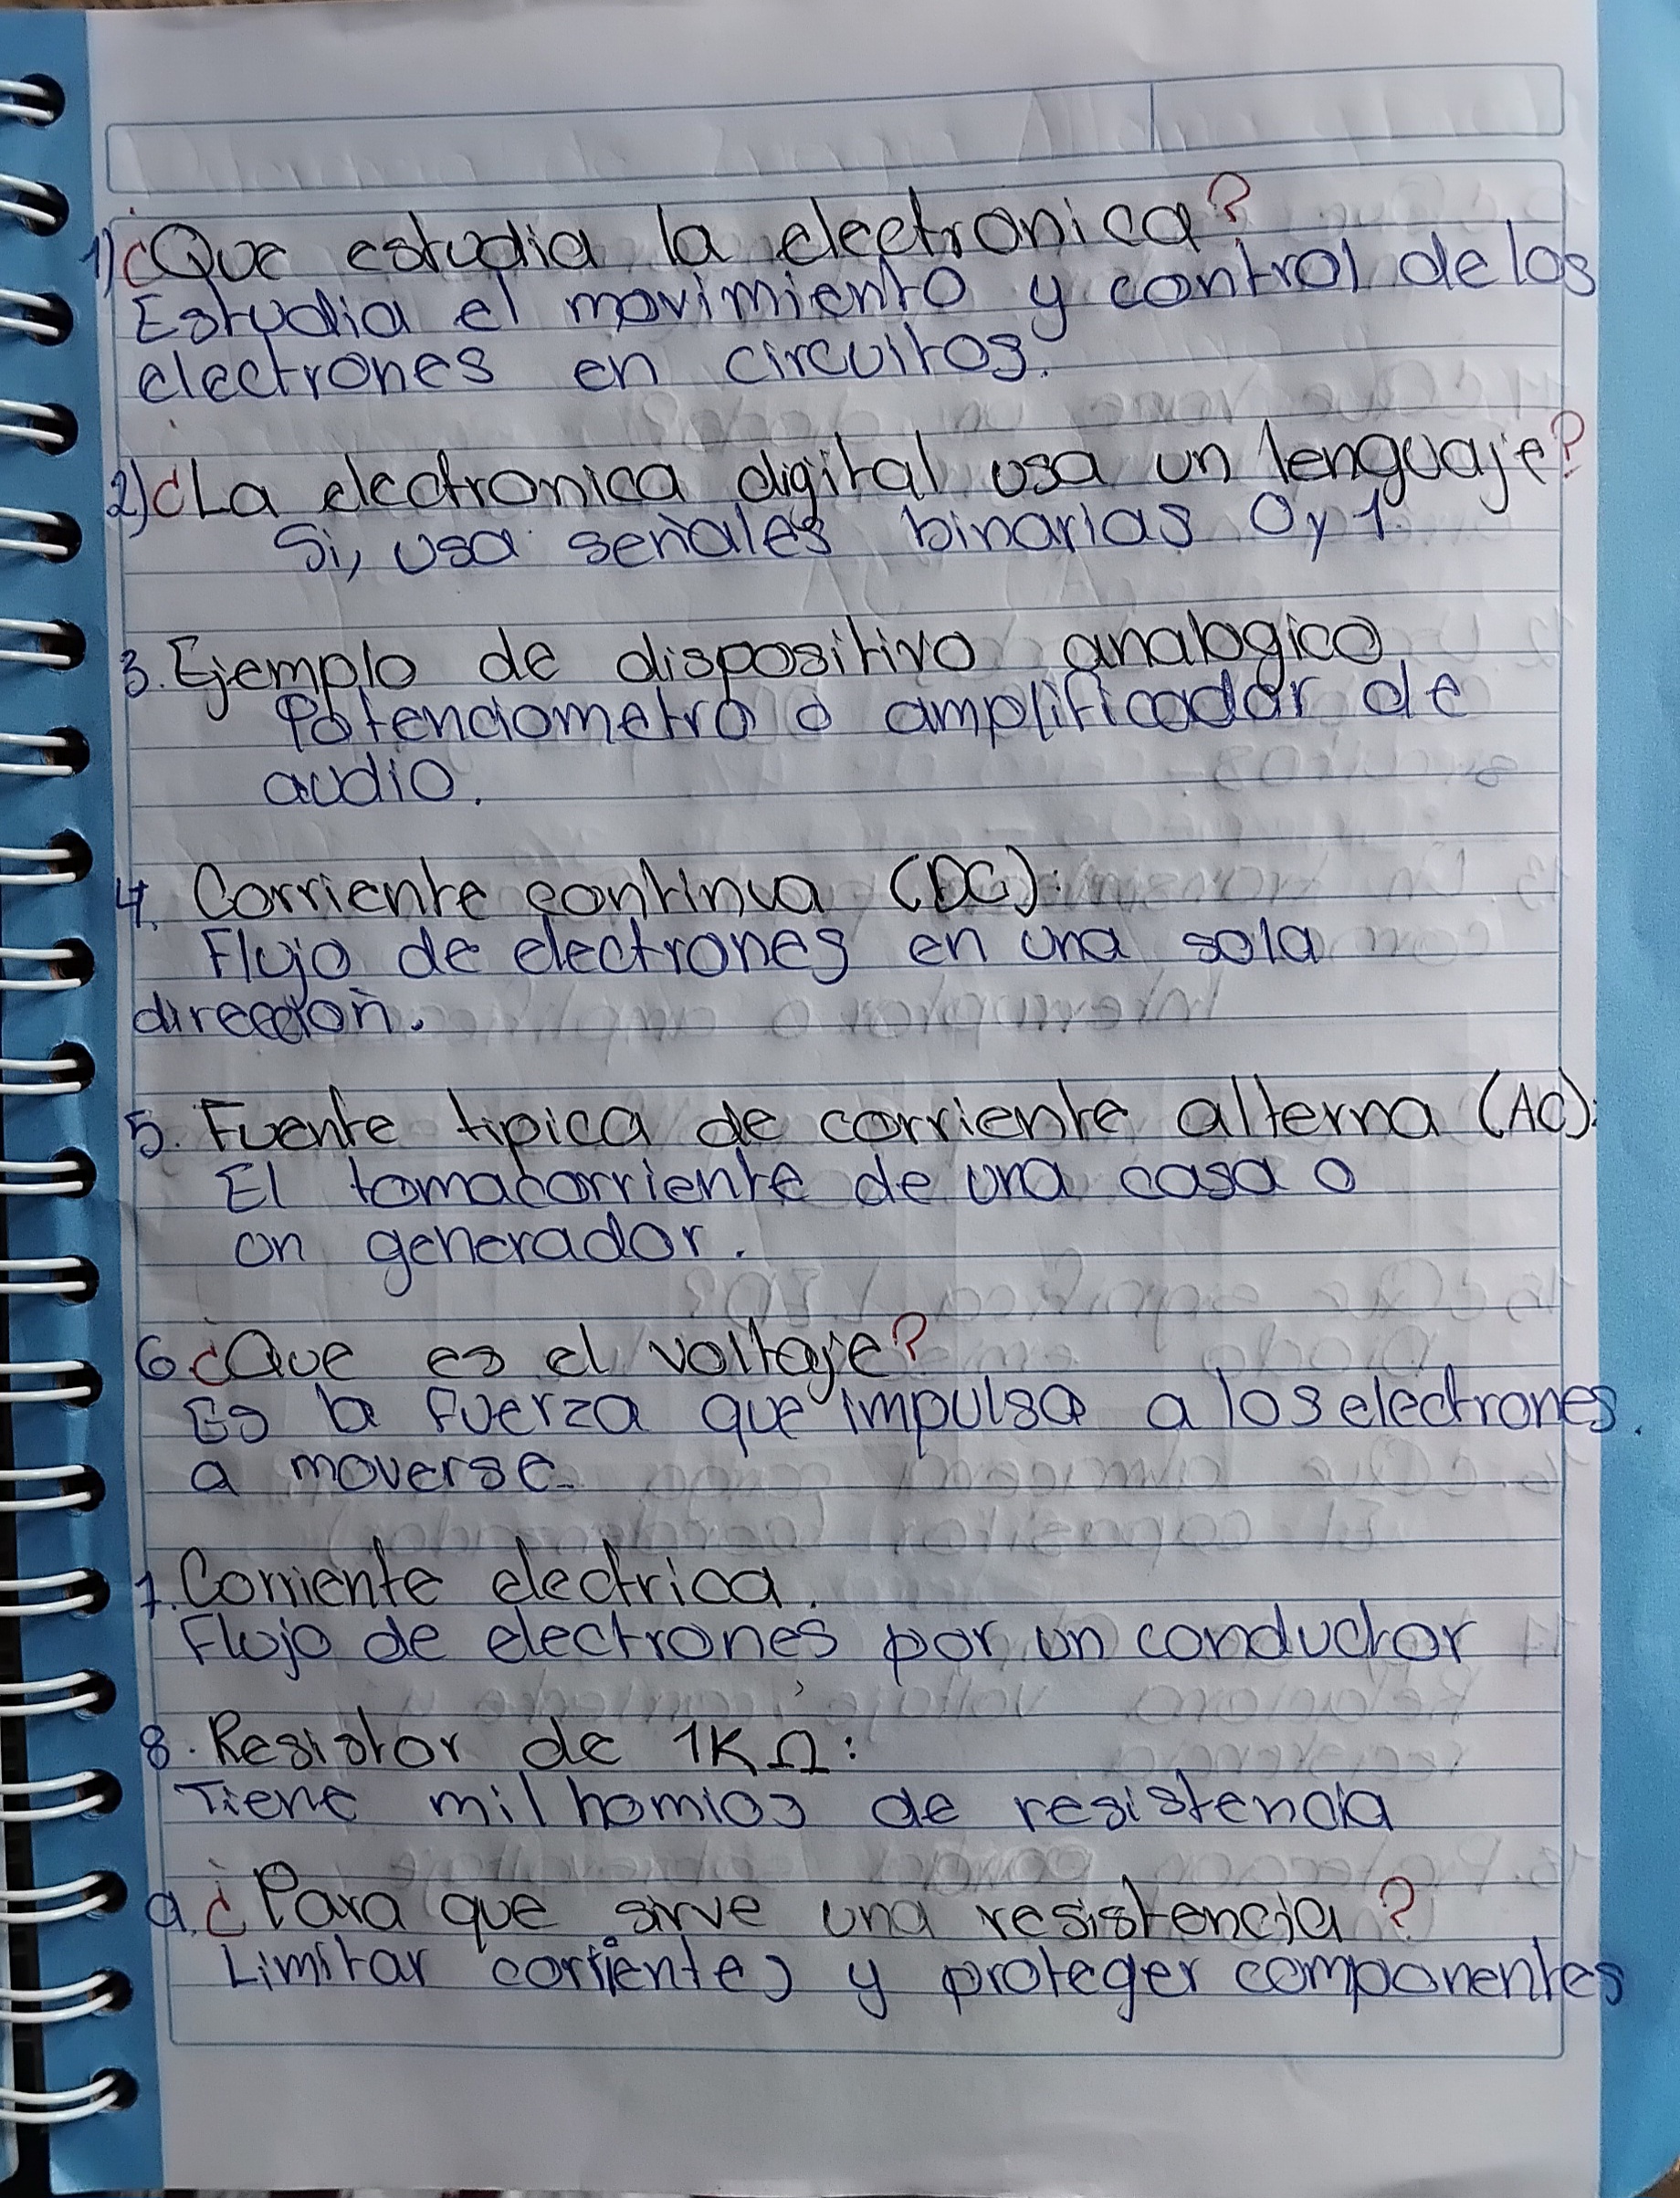 1) ¿Que estudia la electronica?
Estudia el movimiento y control de los
electrones en circuitos.
2) ¿La electronica digital usa un lenguaje?
Si, usa señales binarias 0 y 1.
3. Ejemplo de dispositivo analogico
Potenciometro o amplificador de
audio.
4. Corriente continua (DC):
Flujo de electrones en una sola
dirección.
5. Fuente tipica de corriente alterna (AC):
El tomacorriente de una casa o
un generador.
6 ¿Que es el voltaje?
Es la fuerza que impulsa a los electrones.
a moverse.
7. Corriente electrica.
Flujo de electrones por un conductor
8. Resistor de 1KΩ:
Tiene mil homios de resistencia
9. ¿Para que sirve una resistencia?
Limitar corrientes y proteger componentes